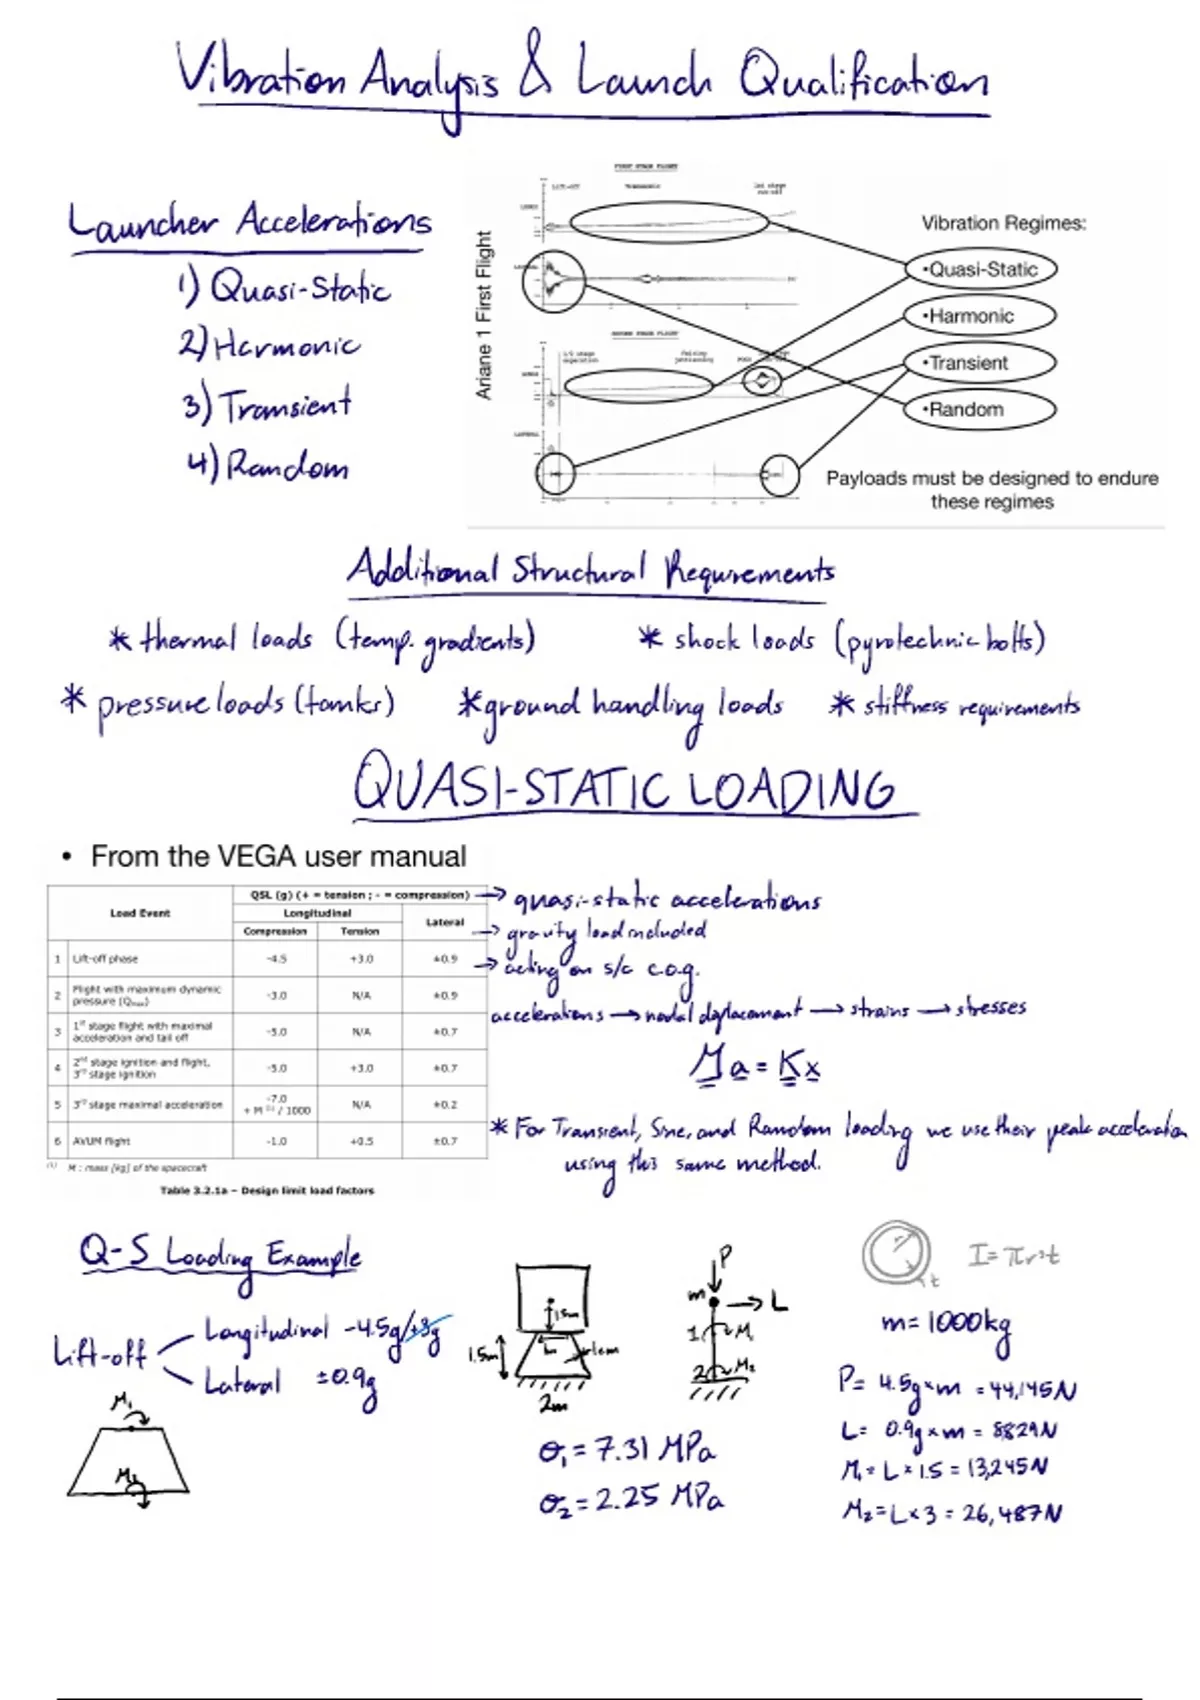 Vibration Analysis & Launch Qualification
Launcher Accelerations
1) Quasi-Static
2) Harmonic
3) Transient
4) Random
Ariane 1 First Flight
FIRST STAGE FLIGHT
Lift-off
Vibration Regimes:
•Quasi-Static
•Harmonic
•Transient
•Random
SECOND STAGE FLIGHT
Payloads must be designed to endure
these regimes
Additional Structural Requirements
* thermal loads (temp. gradients) * shock loads (pyrotechnic bolts)
* pressure loads (tanks) * ground handling loads * stiffness requirements
QUASI-STATIC LOADING
• From the VEGA user manual
Load Event QSL (g) (+ = tension ; - = compression)
Longitudinal Lateral
Compression Tension
1 Lift-off phase -4.5 +3.0 ±0.9
2 Flight with maximum dynamic pressure (Qmax) -3.0 N/A ±0.9
3 1st stage flight with maximal acceleration and tail off -5.0 N/A ±0.7
4 2nd stage ignition and flight, 3rd stage ignition -5.0 +3.0 ±0.7
5 3rd stage maximal acceleration -7.0 + M (1) / 1000 N/A ±0.2
6 AVUM flight -1.0 +0.5 ±0.7
(1) M : mass [kg] of the spacecraft
Table 3.2.1a – Design limit load factors
→ quasi-static accelerations
→ gravity load included
→ acting on s/c c.o.g.
accelerations → nodal displacement → strains → stresses
M a = K x
* For Transient, Sine, and Random loading we use their peak acceleration
using this same method.
Q-S Loading Example
Lift-off
Longitudinal -4.5g/+3g
Lateral ±0.9g
M₁
M₂
1.5m
1.5m
1m
1cm
2m
P
m → L
1 M₁
2 M₂
σ₁ = 7.31 MPa
σ₂ = 2.25 MPa
t
I = πr³t
m = 1000kg
P = 4.5g × m = 44,145N
L = 0.9g × m = 8829N
M₁ = L × 1.5 = 13,245N
M₂ = L × 3 = 26,487N